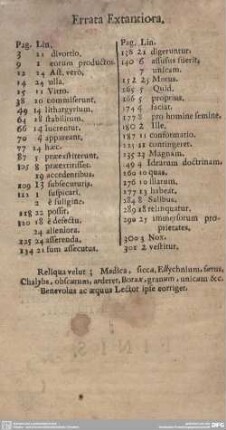 Errata Extantiora,
Pag. Lin.
3 21 divortio,
9 1 eorum productos
12 14 Ast. verò,
14 24 ulla.
15 11 Vitro.
38 10 commiserunt,
49 14 lithargyrium.
64 18 stabilitum.
66 14 lucrentur.
70 4 appareant.
77 14 hæc.
87 5 præexstiterunt.
105 8 præextitisset.
19 accedentibus.
109 13 subsecuturis.
121 1 suspicari.
2 è fuligine.
118 22 possit.
120 18 è defectu.
24 alieniora.
225 24 asserenda,
234 21 sum assecutus.
Pag. Lin.
138 21 digeruntur.
140 6 effusior fuerit,
7 unicam.
152 25 Motus.
165 5 Quid.
166 5 proprius,
171 6 sociat.
177 8 pro homine femine.
180 2 Ille.
187 11 conformatio.
191 18 contingeret.
235 23 Magnam.
249 4 Idoneam doctrinam,
260 10 quas.
276 10 illarum,
277 13 lubeat.
284 8 Salibus.
289 18 relinquatur.
290 27 immersorum proprietates,
300 3 Nox.
301 2 vestitur,
Reliqua velut; Madica, sicca, Ellychnium, sætus,
Chalybs, obscurum, arderet, Borax, granum, unicam &c.
Benevolus ac æquus Lector ipse corriget.